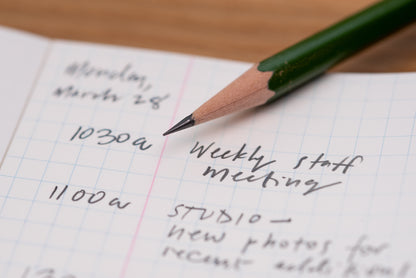 Monday,
March 28
1030a Weekly staff
meeting
1100a STUDIO—
new photos for
recent additional